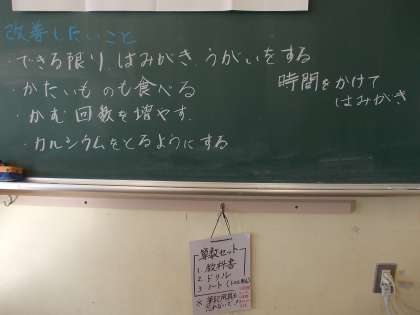 改善したいこと
・できる限り、はみがき、うがいをする
・かたいものも食べる
・かむ回数を増やす。
・カルシウムをとるようにする
時間をかけて
はみがき
算数セット
1 教科書
2 ドリル
3 ノート
※ 筆記用具も
忘れないで!